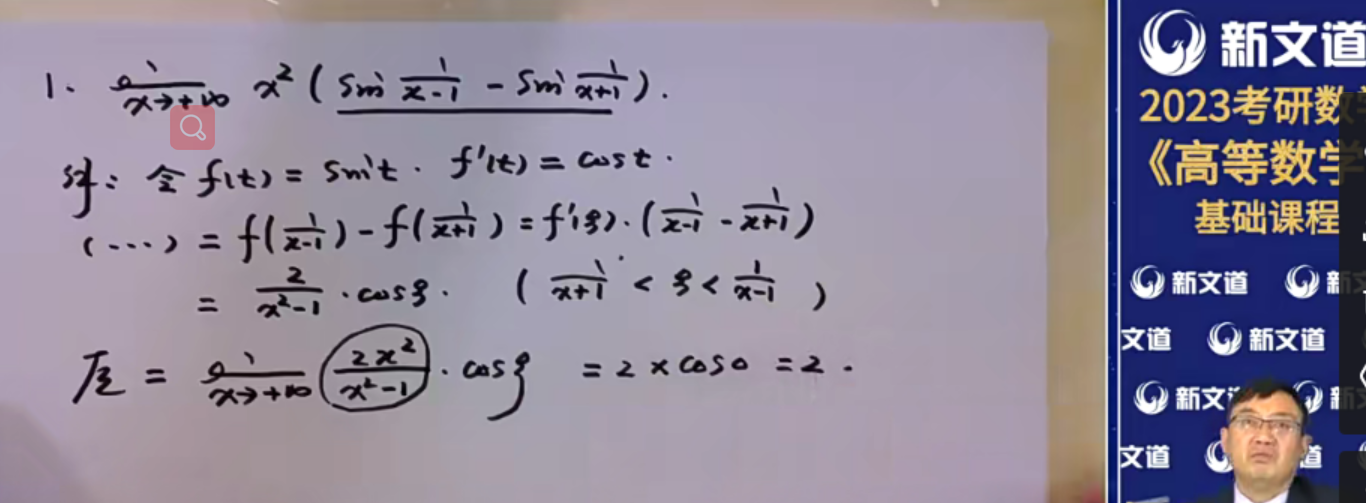 1. lim x→+∞ x² ( sin 1/(x-1) - sin 1/(x+1) ).
解: 令 f(t) = sin t. f'(t) = cos t.
(...) = f(1/(x-1)) - f(1/(x+1)) = f'(ξ)·(1/(x-1) - 1/(x+1))
= 2/(x²-1) · cosξ. ( 1/(x+1) < ξ < 1/(x-1) )
原 = lim x→+∞ (2x²/(x²-1)) · cosξ = 2 × cos0 = 2.
新文道
2023考研数学
《高等数学
基础课程
新文道 新文
文道 新文道
新文道 新
文道 道